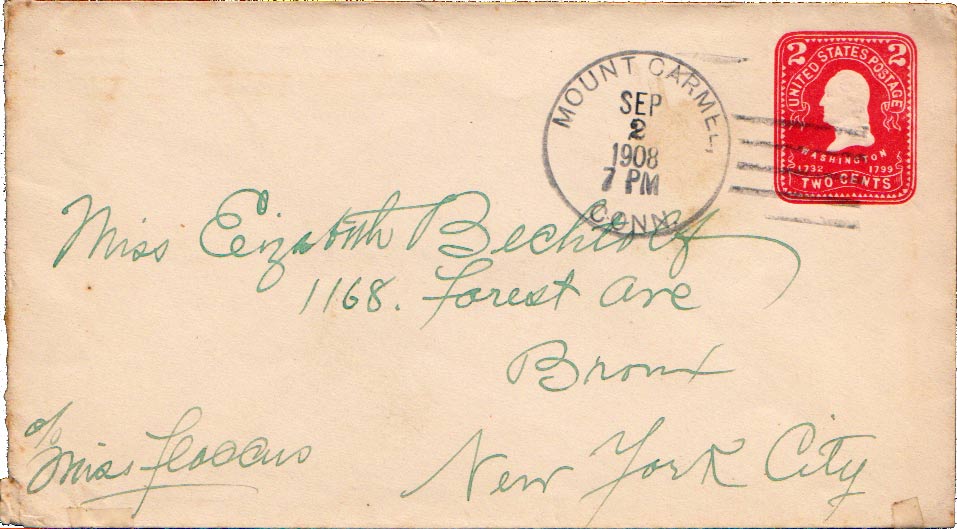 MOUNT CARMEL,
SEP
2
1908
7 PM
CONN.
2 2
UNITED STATES POSTAGE
WASHINGTON
1732 1799
TWO CENTS
Miss Elizabeth Bechtolf
1168. Forest Ave
Bronx
New York City
c/o
Miss